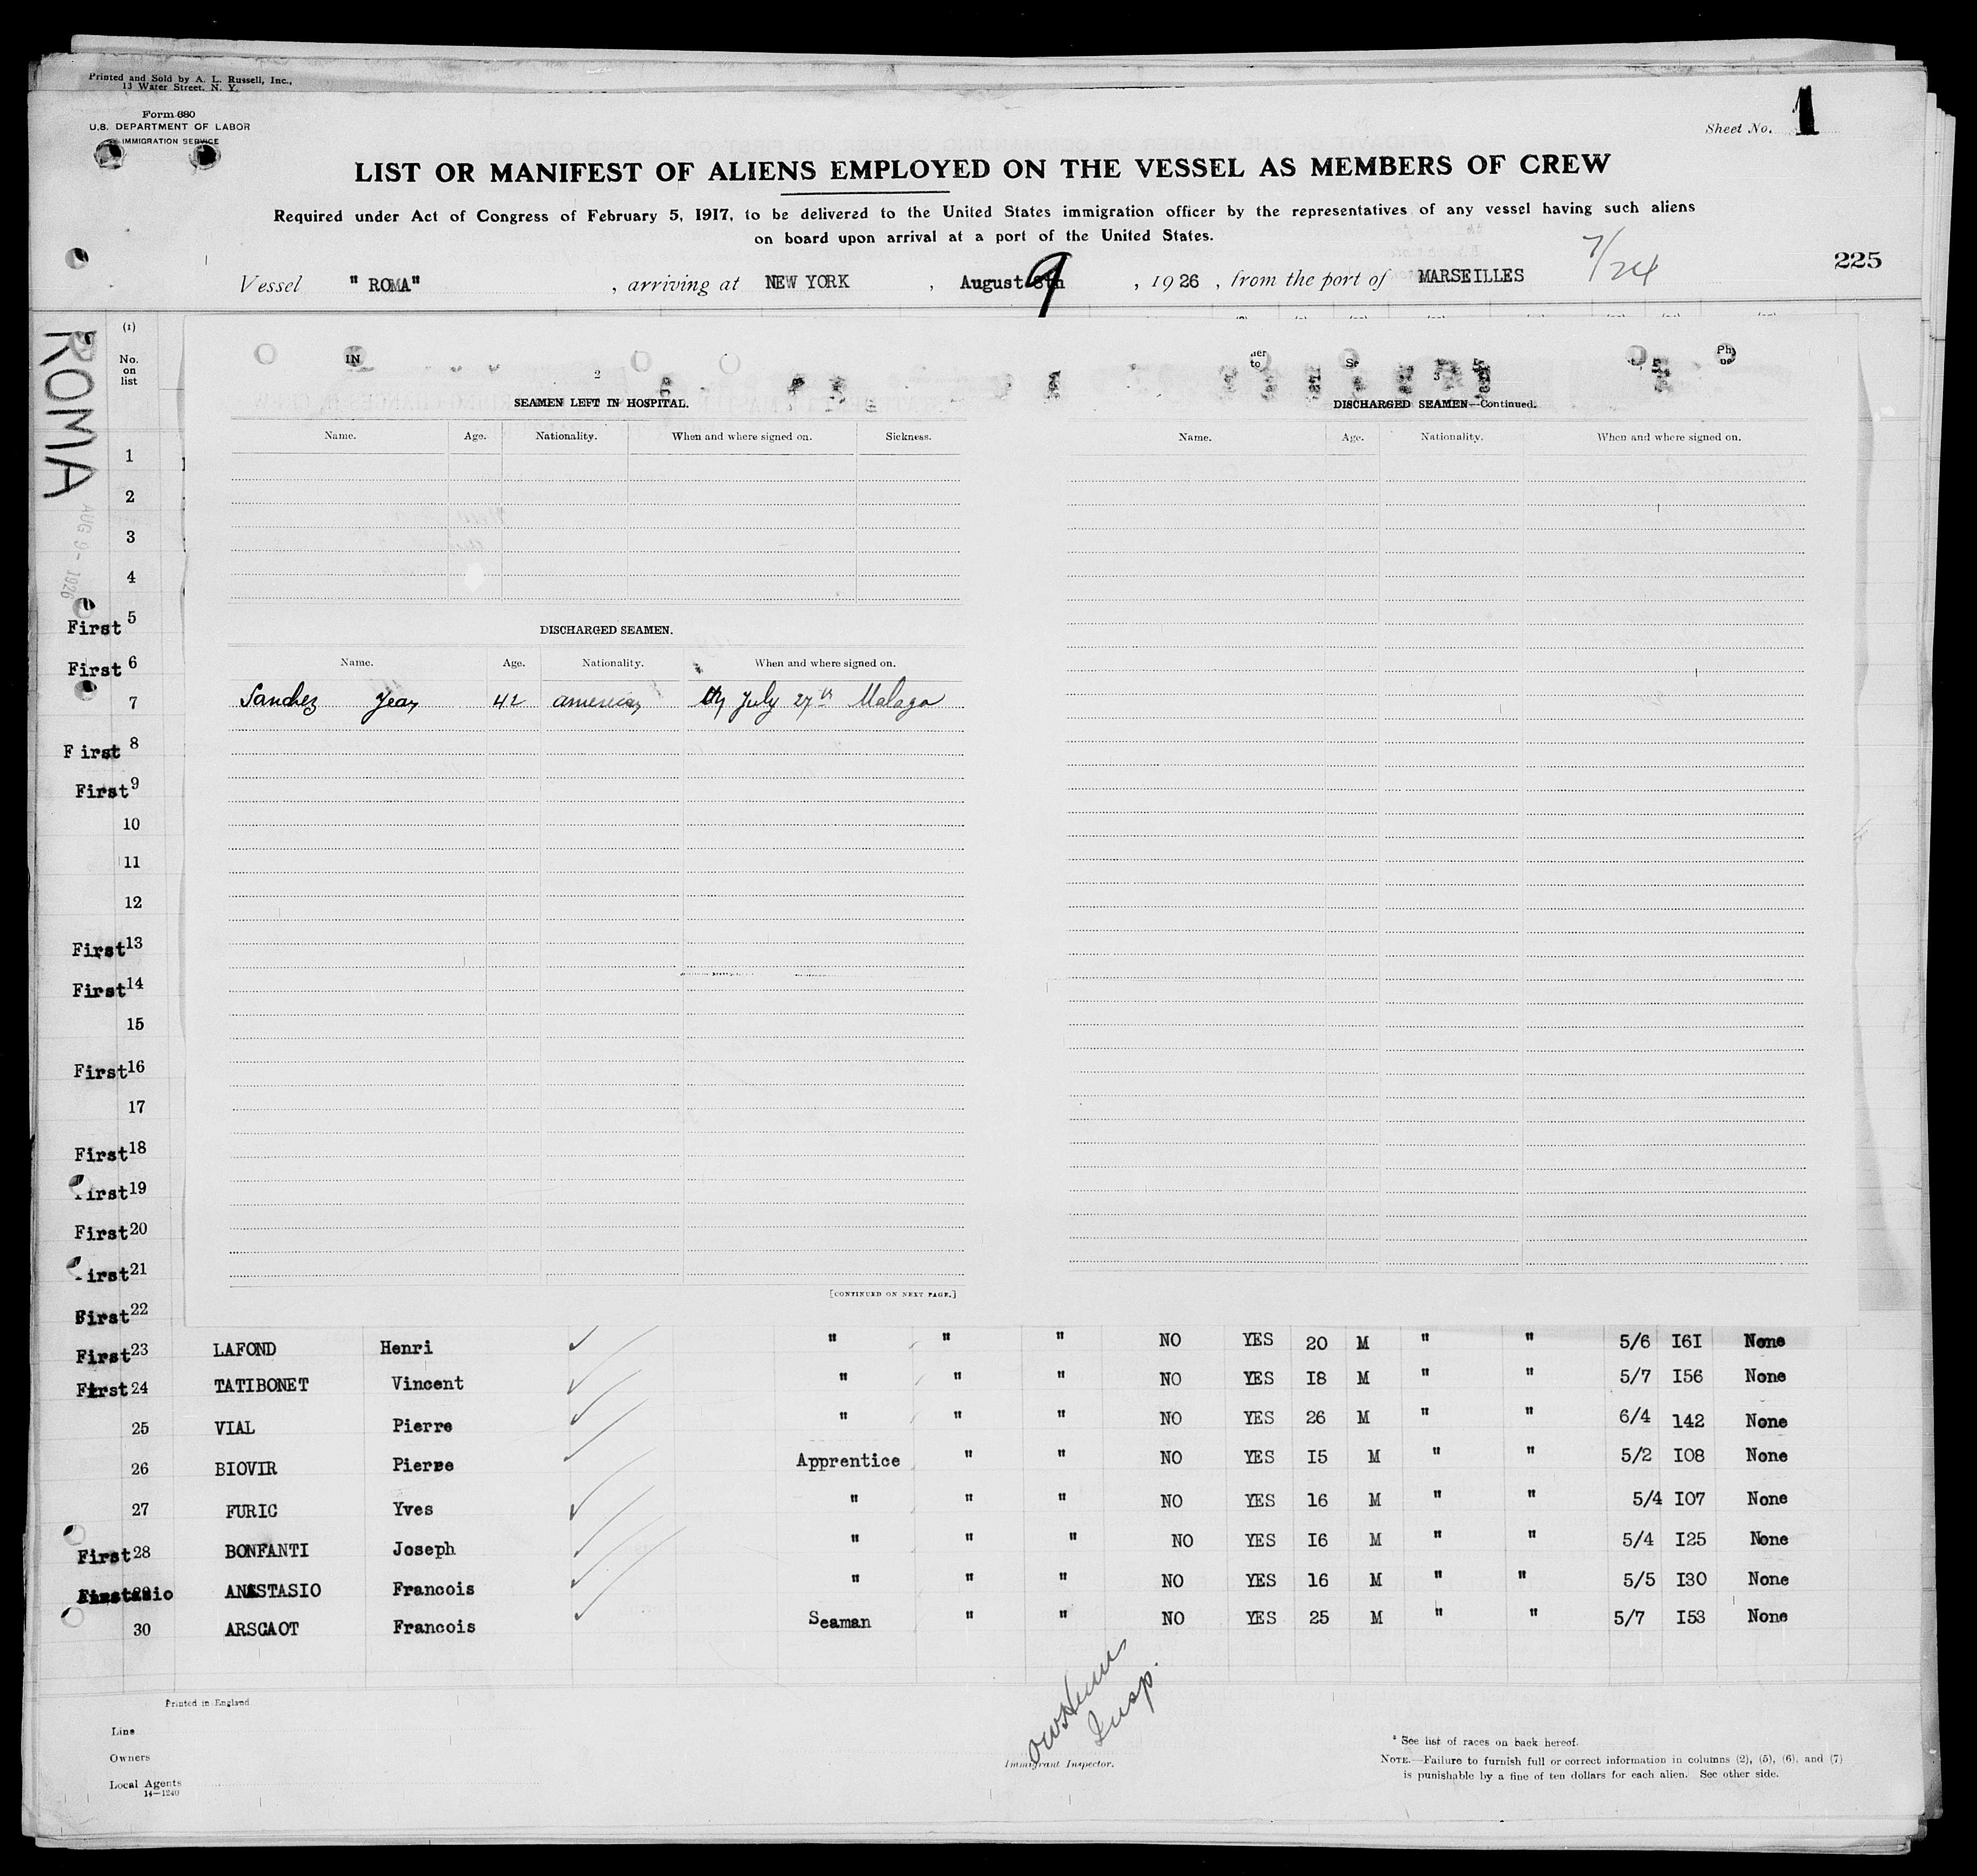 Printed and Sold by A. L. Russell, Inc.,
13 Water Street, N. Y.
Form 680
U.S. DEPARTMENT OF LABOR
IMMIGRATION SERVICE
Sheet No. 1
LIST OR MANIFEST OF ALIENS EMPLOYED ON THE VESSEL AS MEMBERS OF CREW
Required under Act of Congress of February 5, 1917, to be delivered to the United States immigration officer by the representatives of any vessel having such aliens
on board upon arrival at a port of the United States.
7/24
225
Vessel " ROMA" , arriving at NEW YORK , August 9 , 1926 , from the port of MARSEILLES
ROMA
AUG 9 - 1926
(1)
No. on list
2
3
SEAMEN LEFT IN HOSPITAL.
Name. Age. Nationality. When and where signed on. Sickness.
DISCHARGED SEAMEN—Continued.
Name. Age. Nationality. When and where signed on.
1
2
3
4
First 5
First 6
DISCHARGED SEAMEN.
Name. Age. Nationality. When and where signed on.
7 Sanchez Jean 42 american July 27th Malaga
First 8
First 9
10
11
12
First 13
First 14
15
First 16
17
First 18
irst 19
First 20
irst 21
First 22
[CONTINUED ON NEXT PAGE.]
First 23 LAFOND Henri " " " NO YES 20 M " " 5/6 I6I None
First 24 TATIBONET Vincent " " " NO YES I8 M " " 5/7 I56 None
25 VIAL Pierre " " " NO YES 26 M " " 6/4 142 None
26 BIOVIR Pierre Apprentice " " NO YES I5 M " " 5/2 I08 None
27 FURIC Yves " " " NO YES 16 M " " 5/4 I07 None
First 28 BONFANTI Joseph " " " NO YES I6 M " " 5/4 I25 None
ANASTASIO Francois " " " NO YES 16 M " " 5/5 I30 None
30 ARSGAOT Francois Seaman " " NO YES 25 M " " 5/7 I53 None
Printed in England
Line
Owners
Local Agents
14—1240
Insp.
Immigrant Inspector.
* See list of races on back hereof.
NOTE.—Failure to furnish full or correct information in columns (2), (5), (6), and (7)
is punishable by a fine of ten dollars for each alien. See other side.